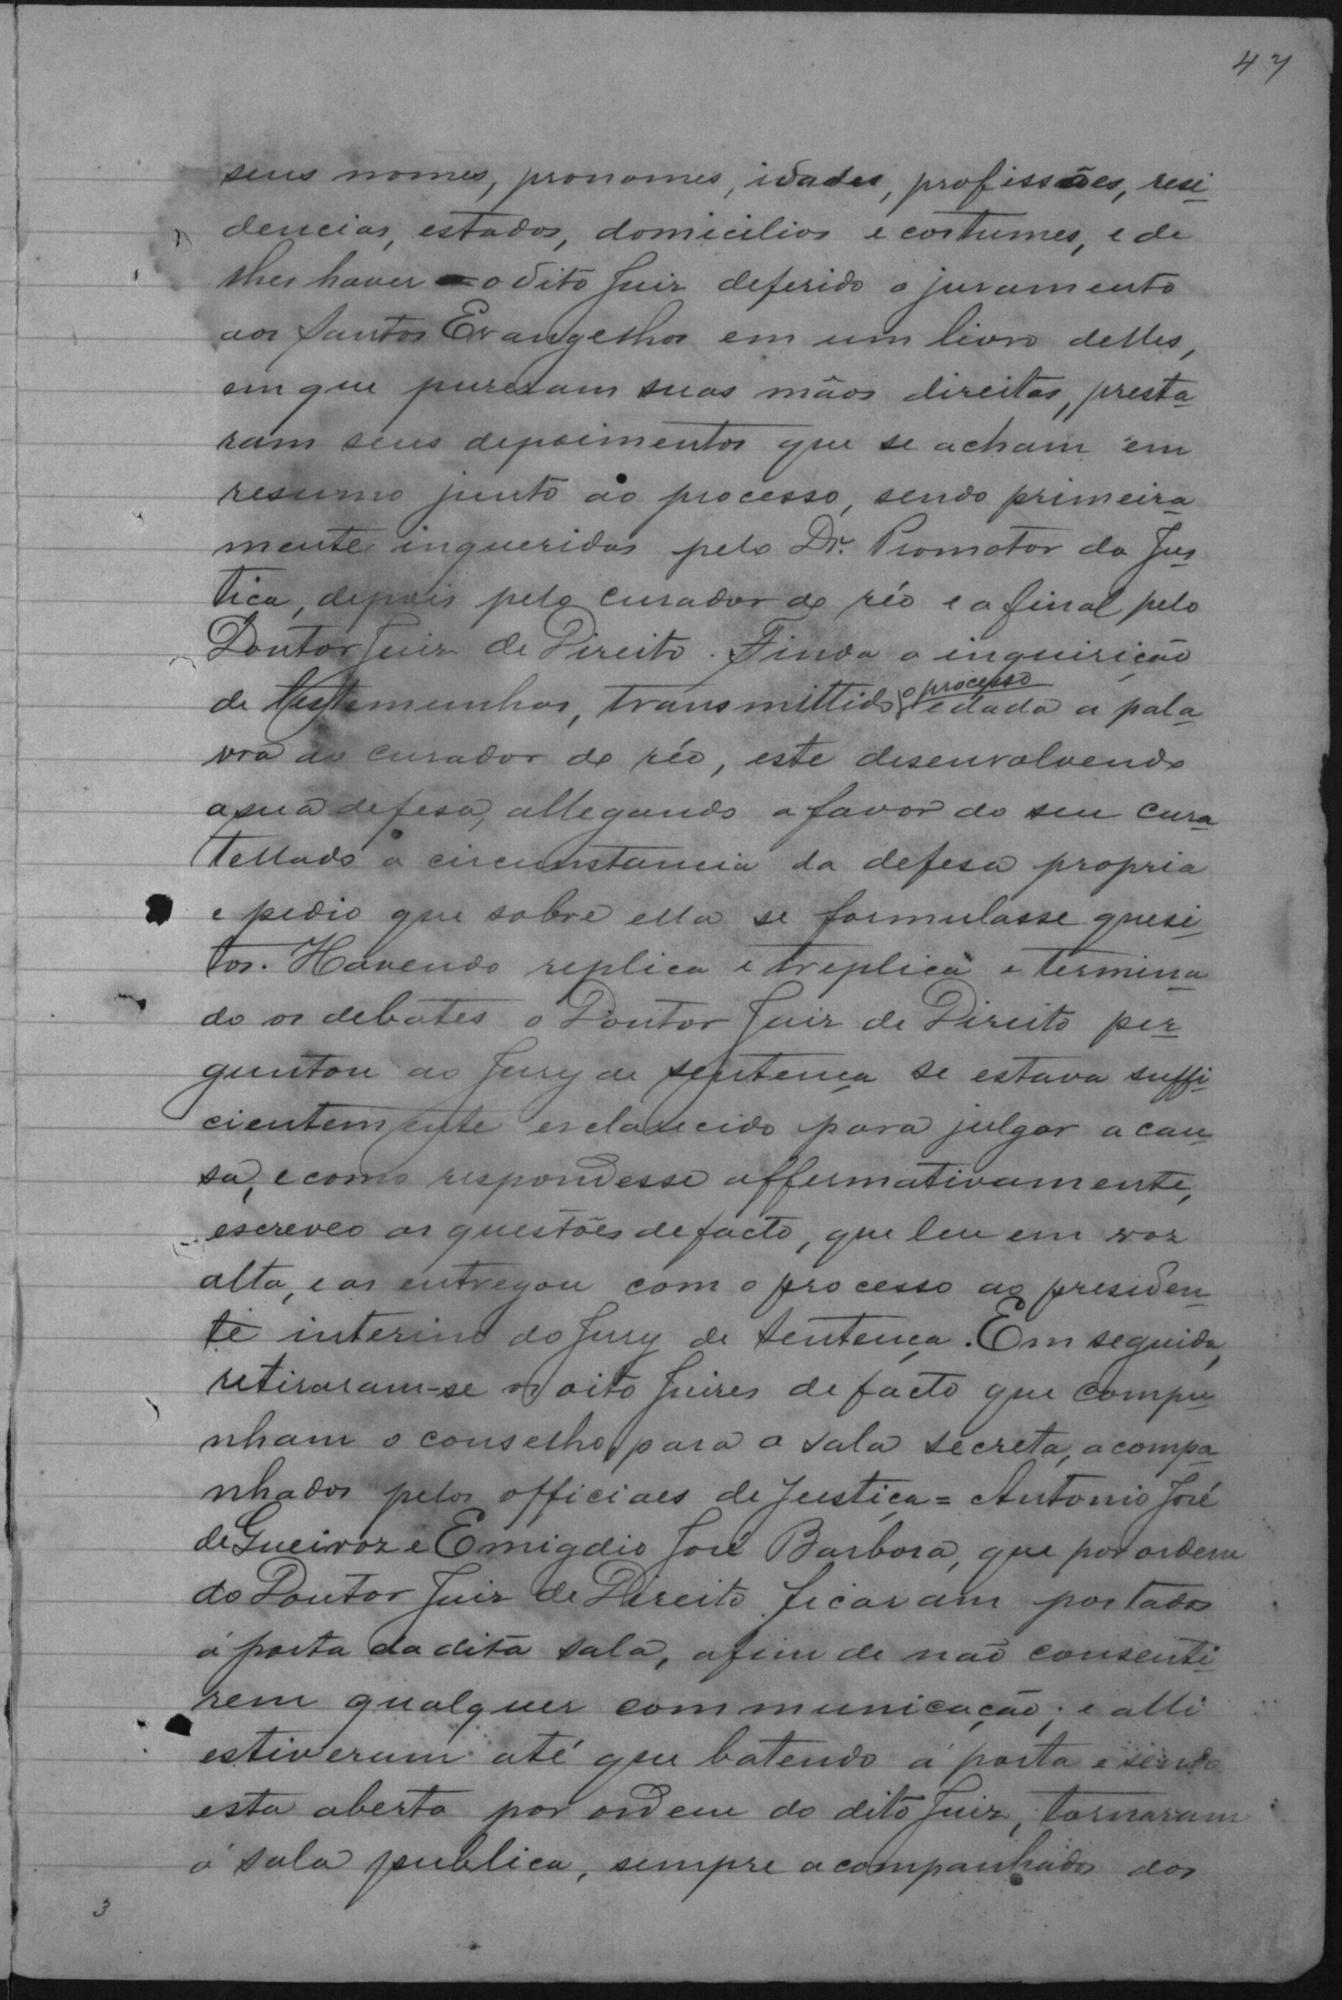 47
seus nomes, pronomes, idades, profissões, resi-
dencias, estados, domicilios e costumes, e de
lhes haver o dito Juiz deferido o juramento
aos Santos Evangelhos em um livro delles,
em que puzeram suas mãos direitas, presta-
ram seus depoimentos que se acham em
resumo junto ao processo, sendo primeira-
mente inqueridas pelo Dr. Promotor da Jus-
tica, depois pelo curador do réo e a final pelo
Doutor Juiz de Direito. Finda a inquirição
de testemunhas, transmittido o processo e dada a pala-
vra ao curador do réo, este desenvolvendo
a sua defesa, allegando a favor do seu cura-
tellado a circunstancia da defesa propria
e pedio que sobre ella se formulasse quesi-
tos. Havendo replica e treplica e termina-
do os debates o Doutor Juiz de Direito per-
guntou ao Jury de sentença se estava suffi-
cientemente esclarecido para julgar a cau-
sa, e como respondesse affermativamente,
escreveo as questões de facto, que leu em voz
alta, e as entregou com o processo ao presiden-
te interino do Jury de Sentença. Em seguida,
retiraram-se os oito Juizes de facto que compu-
nham o conselho, para a sala secreta, acompa-
nhados pelos officiaes de Justiça = Antonio José
de Gueiroz e Emigdio José Barbosa, que por ordem
do Doutor Juiz de Direito ficaram postados
á porta da dita sala, afim de não consenti-
rem qualquer communicação; e alli
estiveram até que batendo á porta e sendo
esta aberta por ordem do dito Juiz, tornaram
á sala publica, sempre acompanhados dos
3